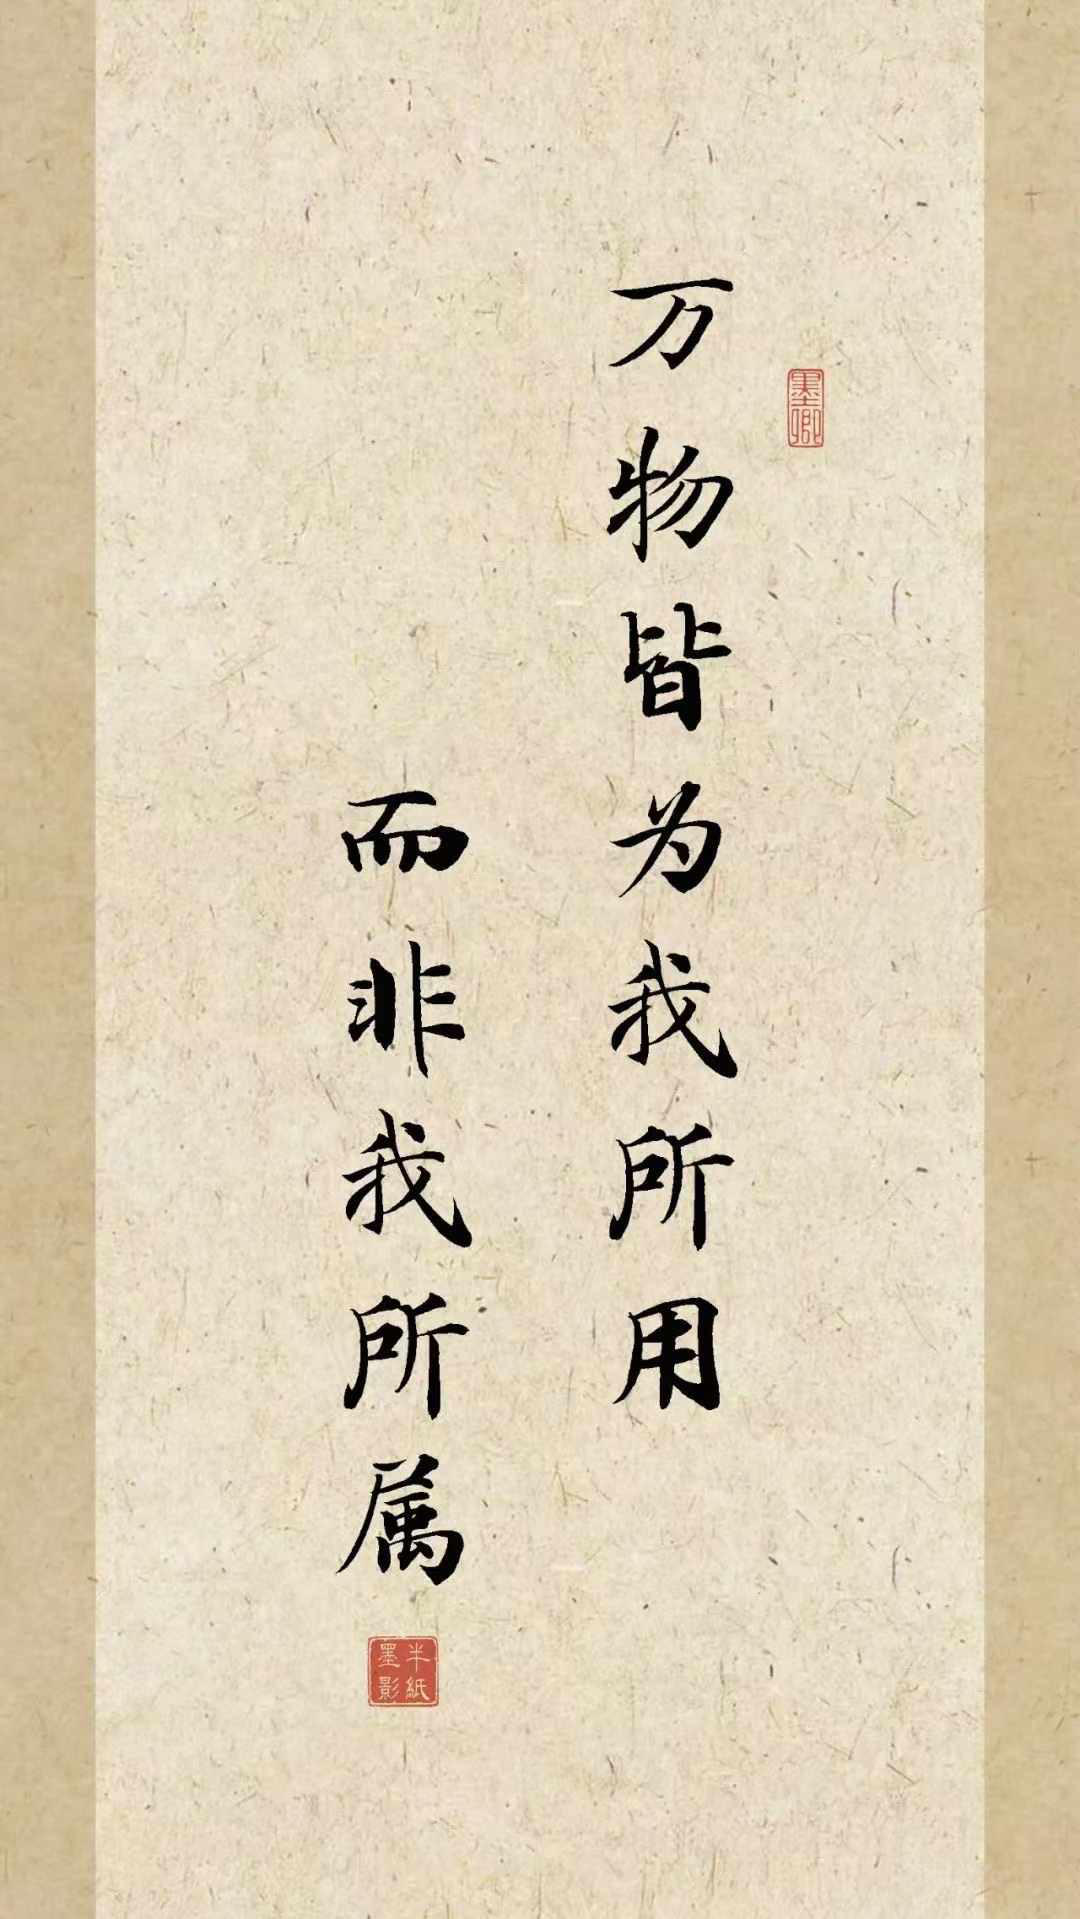 万物皆为我所用
而非我所属
墨卿
半紙墨影